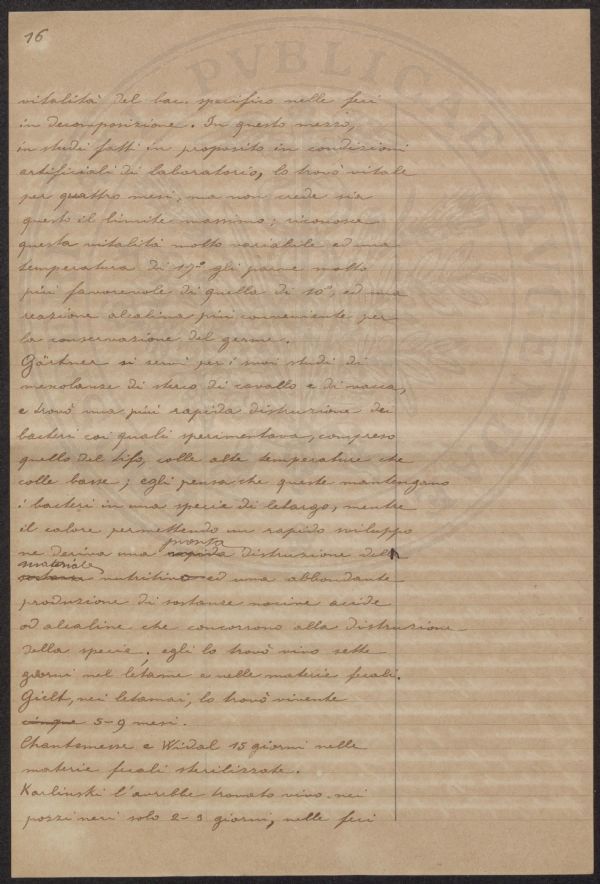 16
vitalità del bac. specifico nelle feci
in decomposizione. In questo mezzo,
in studi fatti in proposito in condizioni
artificiali di laboratorio, lo trovò vitale
per quattro mesi, ma non crede sia
questo il limite massimo; riconosce
questa vitalità molto variabile ed una
temperatura di 17° gli parve molto
più favorevole di quella di 10°, ed una
reazione alcalina più conveniente per
la conservazione del germe.
Gärtner si servì per i suoi studi di
mescolanze di sterco di cavallo e di vacca,
e trovò una più rapida distruzione dei
bacteri coi quali sperimentava, compreso
quello del tifo, colle alte temperature che
colle basse; egli pensa che queste mantengano
i bacteri in una specie di letargo, mentre
il calore permettendo un rapido sviluppo
pronta
ne deriva una rapida distruzione del
materiale
sostanze nutritivo ed una abbondante
produzione di sostanze nocive acide
od alcaline che concorrono alla distruzione
della specie; egli lo trovò vivo sette
giorni nel letame e nelle materie fecali.
Gielt, nei letamai, lo trovò vivente
cinque 5-9 mesi.
Chantemesse e Widal 15 giorni nelle
materie fecali sterilizzate.
Karlinski l'avrebbe trovato vivo nei
pozzi neri solo 2-3 giorni, nelle feci